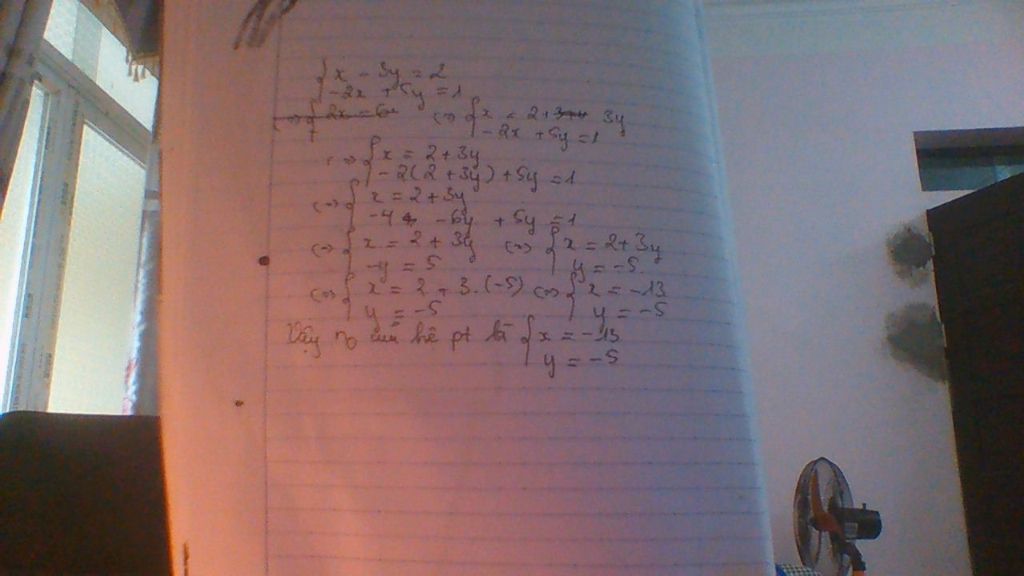 { x - 3y = 2
-2x + 5y = 1
<=> { 2x = 6 <=> { x = 2 + 3y
-2x + 5y = 1
<=> { x = 2 + 3y
-2(2 + 3y) + 5y = 1
<=> { x = 2 + 3y
-4 - 6y + 5y = 1
<=> { x = 2 + 3y <=> { x = 2 + 3y
-y = 5 y = -5.
<=> { x = 2 + 3.(-5) <=> { x = -13
y = -5 y = -5
Vậy no của hệ pt là { x = -13
y = -5